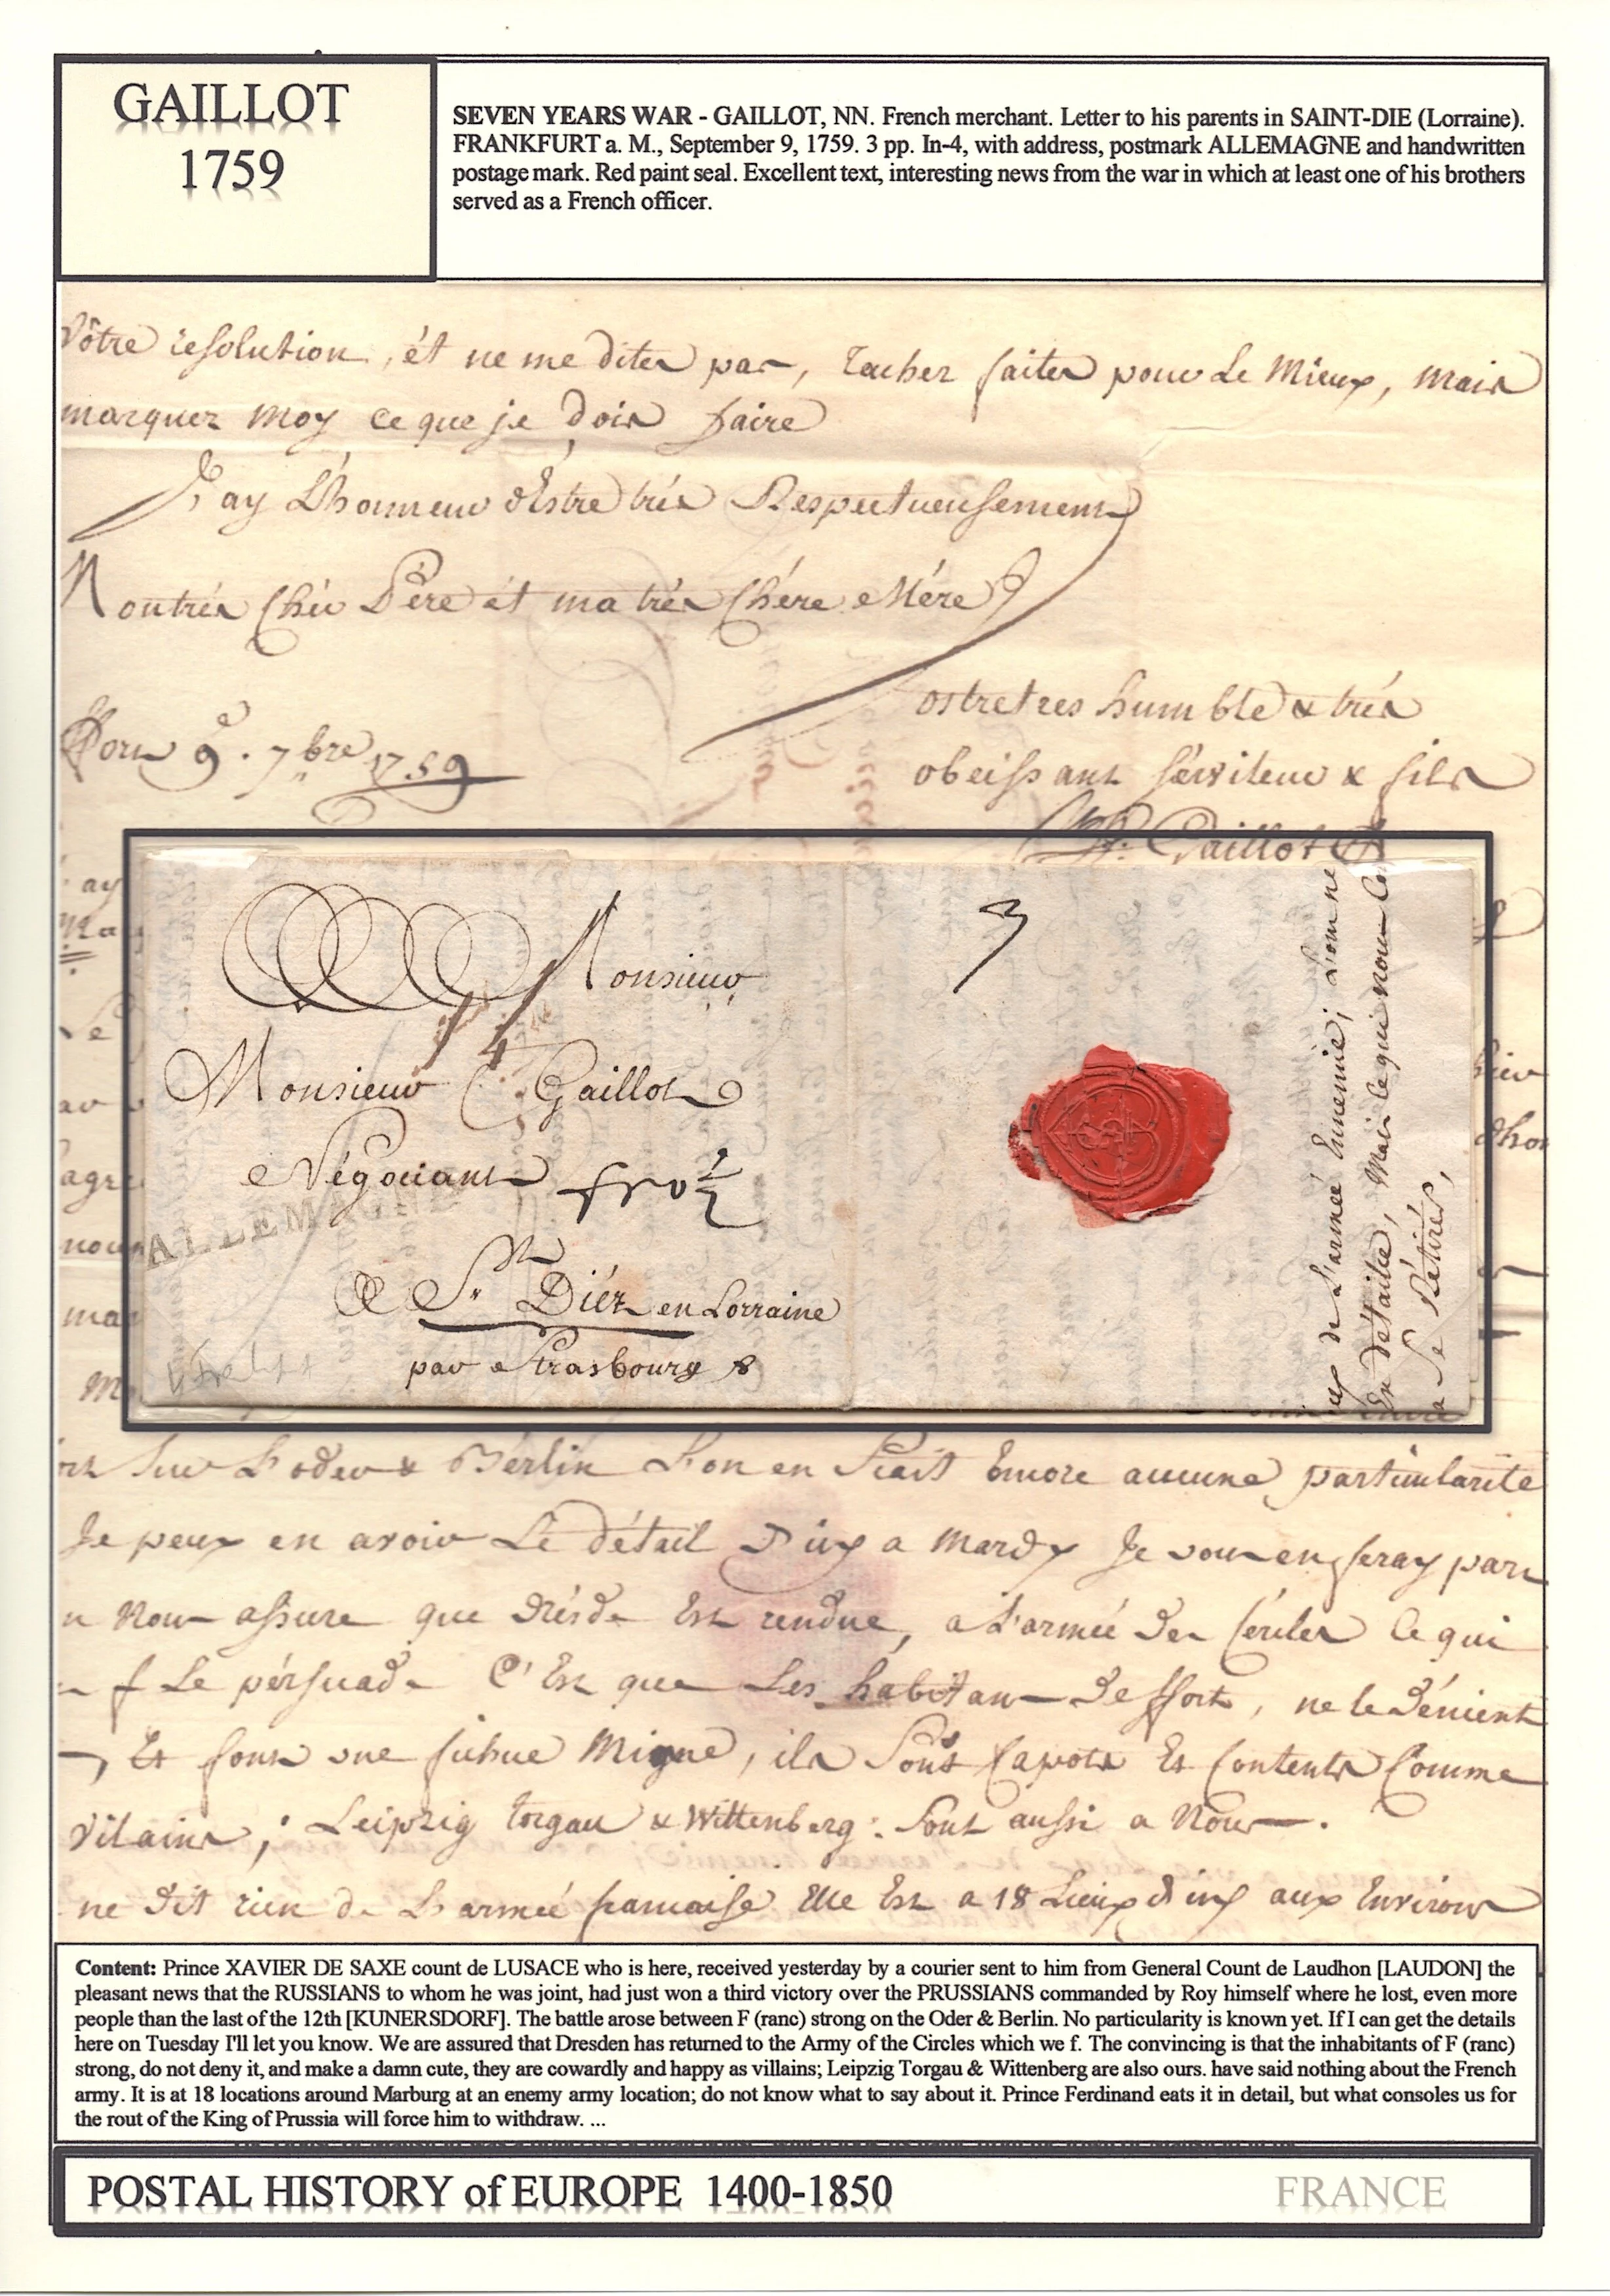 GAILLOT
1759
SEVEN YEARS WAR - GAILLOT, NN. French merchant. Letter to his parents in SAINT-DIE (Lorraine).
FRANKFURT a. M., September 9, 1759. 3 pp. In-4, with address, postmark ALLEMAGNE and handwritten
postage mark. Red paint seal. Excellent text, interesting news from the war in which at least one of his brothers
served as a French officer.
Vôtre resolution, ét ne me dites pas, tachez faites pour Le Mieux, mais
marquez moy ce que je dois faire
J'ay L'honneur d'Estre trés Respectueusement
Mon trés Chér Pére ét ma trés Chére Mére
ostre tres humble & trés
9e. 7bre 1759
obeissant sérviteur & fils
Gaillot
Monsieur
3
4
Monsieur Gaillot
Négociant
ALLEMAGNE
A St. Diéz en Lorraine
par Strasbourg
de L'armée Ennemie; L'on ne
En détaille, Mais ce qui nous
a Se Rétirér,
sur L'oder & Bérlin L'on en Scait Encore aucune particularité
Je peux en avoir Le détail D'icy a Mardy Je vous en feray part
Nous assure que Drésde Est rendue, a L'armée des Cércles Ce qui
f Le pérsuade C'Est que Les habitans de ffort, ne le dénient
Et font une fichue Migne, ils Sont Capots Et Contents Comme
Vilains; Leipzig torgau & Wittenberg: Sont aussi a Nous.
ne dit rien de L'armée francaise Elle Est a 18 Lieux d'icy aux Environs
Content: Prince XAVIER DE SAXE count de LUSACE who is here, received yesterday by a courier sent to him from General Count de Laudhon [LAUDON] the
pleasant news that the RUSSIANS to whom he was joint, had just won a third victory over the PRUSSIANS commanded by Roy himself where he lost, even more
people than the last of the 12th [KUNERSDORF]. The battle arose between F (ranc) strong on the Oder & Berlin. No particularity is known yet. If I can get the details
here on Tuesday I'll let you know. We are assured that Dresden has returned to the Army of the Circles which we f. The convincing is that the inhabitants of F (ranc)
strong, do not deny it, and make a damn cute, they are cowardly and happy as villains; Leipzig Torgau & Wittenberg are also ours. have said nothing about the French
army. It is at 18 locations around Marburg at an enemy army location; do not know what to say about it. Prince Ferdinand eats it in detail, but what consoles us for
the rout of the King of Prussia will force him to withdraw. ...
POSTAL HISTORY of EUROPE 1400-1850
FRANCE